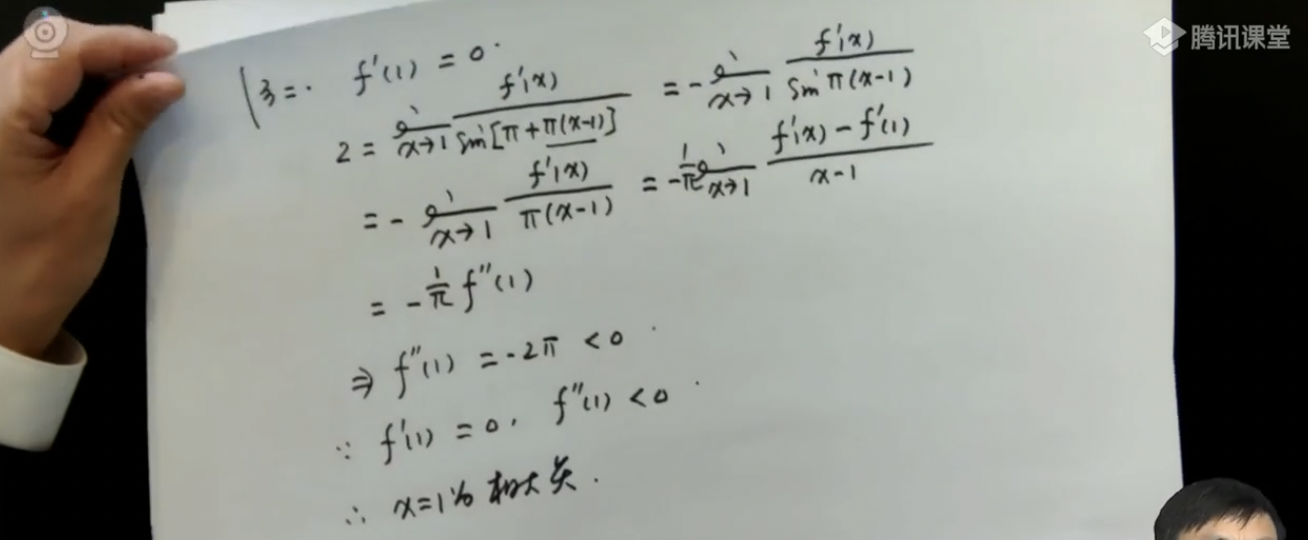 腾讯课堂
f'(1) = 0.
2 = lim x→1 f'(x) / sin[π+π(x-1)] = - lim x→1 f'(x) / sin π(x-1)
= - lim x→1 f'(x) / π(x-1) = -1/π lim x→1 f'(x) - f'(1) / x-1
= -1/π f''(1)
⇒ f''(1) = -2π < 0.
∵ f'(1) = 0, f''(1) < 0.
∴ x=1为极大点.